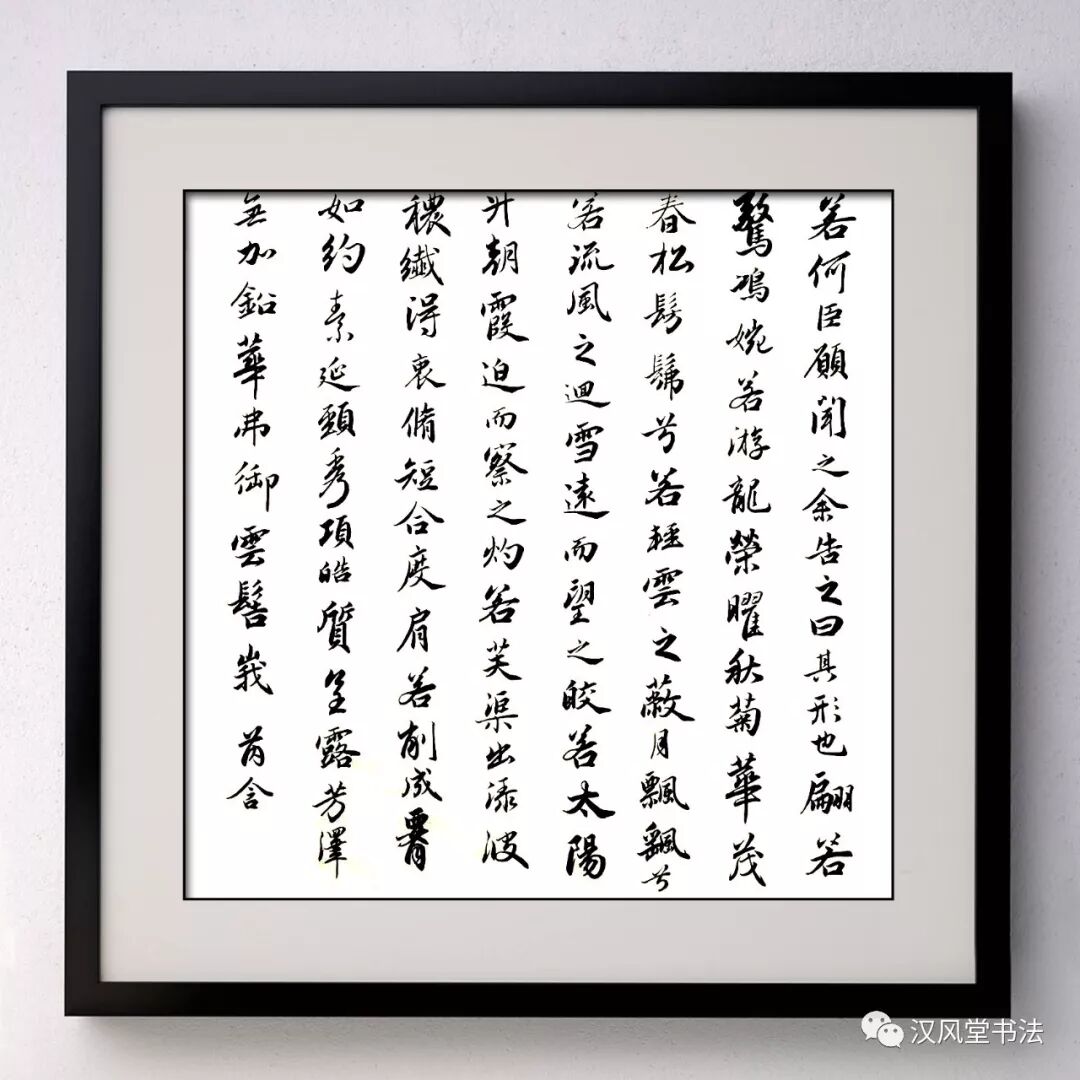 若何臣願聞之余告之曰其形也翩若
驚鴻婉若游龍榮曜秋菊華茂
春松髣髴兮若輕雲之蔽月飄飖兮
若流風之迴雪遠而望之皎若太陽
升朝霞迫而察之灼若芙渠出渌波
穠纖得衷脩短合度肩若削成署
如約素延頸秀項皓質呈露芳澤
無加鉛華弗御雲髻峩 芮含
汉风堂书法